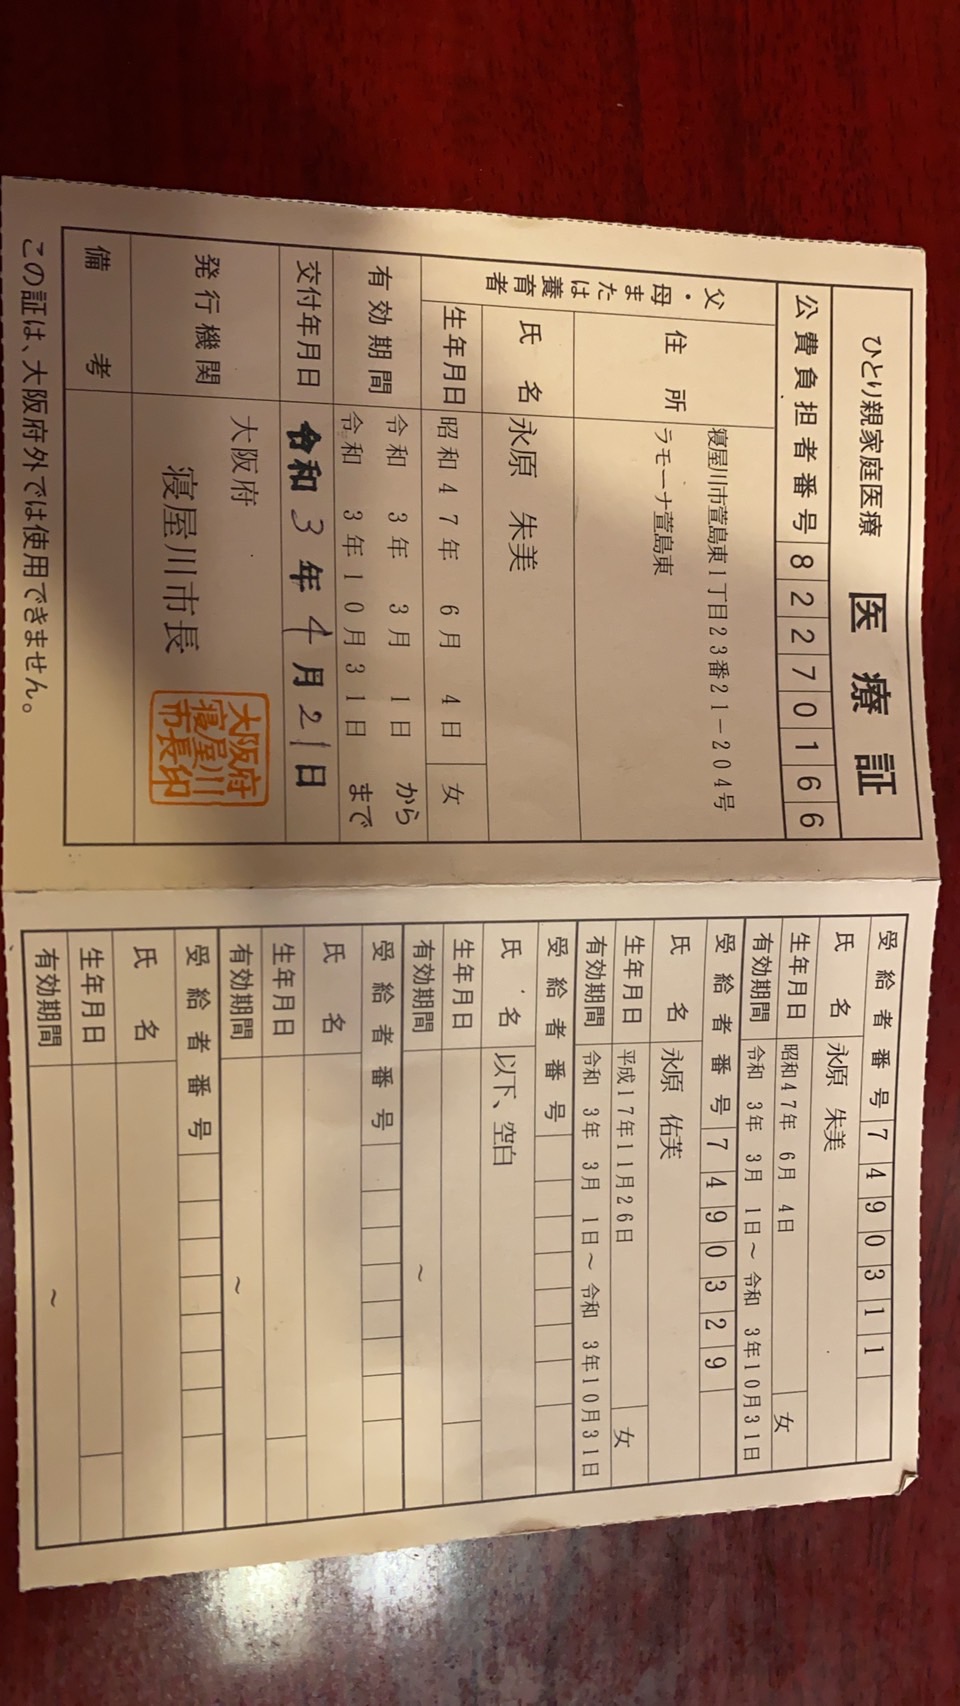 ひとり親家庭医療 医療証
公費負担者番号 82270166
父・母または養育者
住所 寝屋川市萱島東1丁目23番21-204号
ラモーナ萱島東
氏名 永原 朱美
生年月日 昭和47年 6月 4日 女
有効期間 令和 3年 3月 1日 から
令和 3年10月31日 まで
交付年月日 令和3年4月21日
発行機関 大阪府
寝屋川市長
大阪府寝屋川市長印
備考
この証は、大阪府外では使用できません。
受給者番号 7490311
氏名 永原 朱美
生年月日 昭和47年 6月 4日 女
有効期間 令和 3年 3月 1日~令和 3年10月31日
受給者番号 7490329
氏名 永原 佑芙
生年月日 平成17年11月26日 女
有効期間 令和 3年 3月 1日~令和 3年10月31日
受給者番号
氏名 以下、空白
生年月日
有効期間 ~
受給者番号
氏名
生年月日
有効期間 ~
受給者番号
氏名
生年月日
有効期間 ~